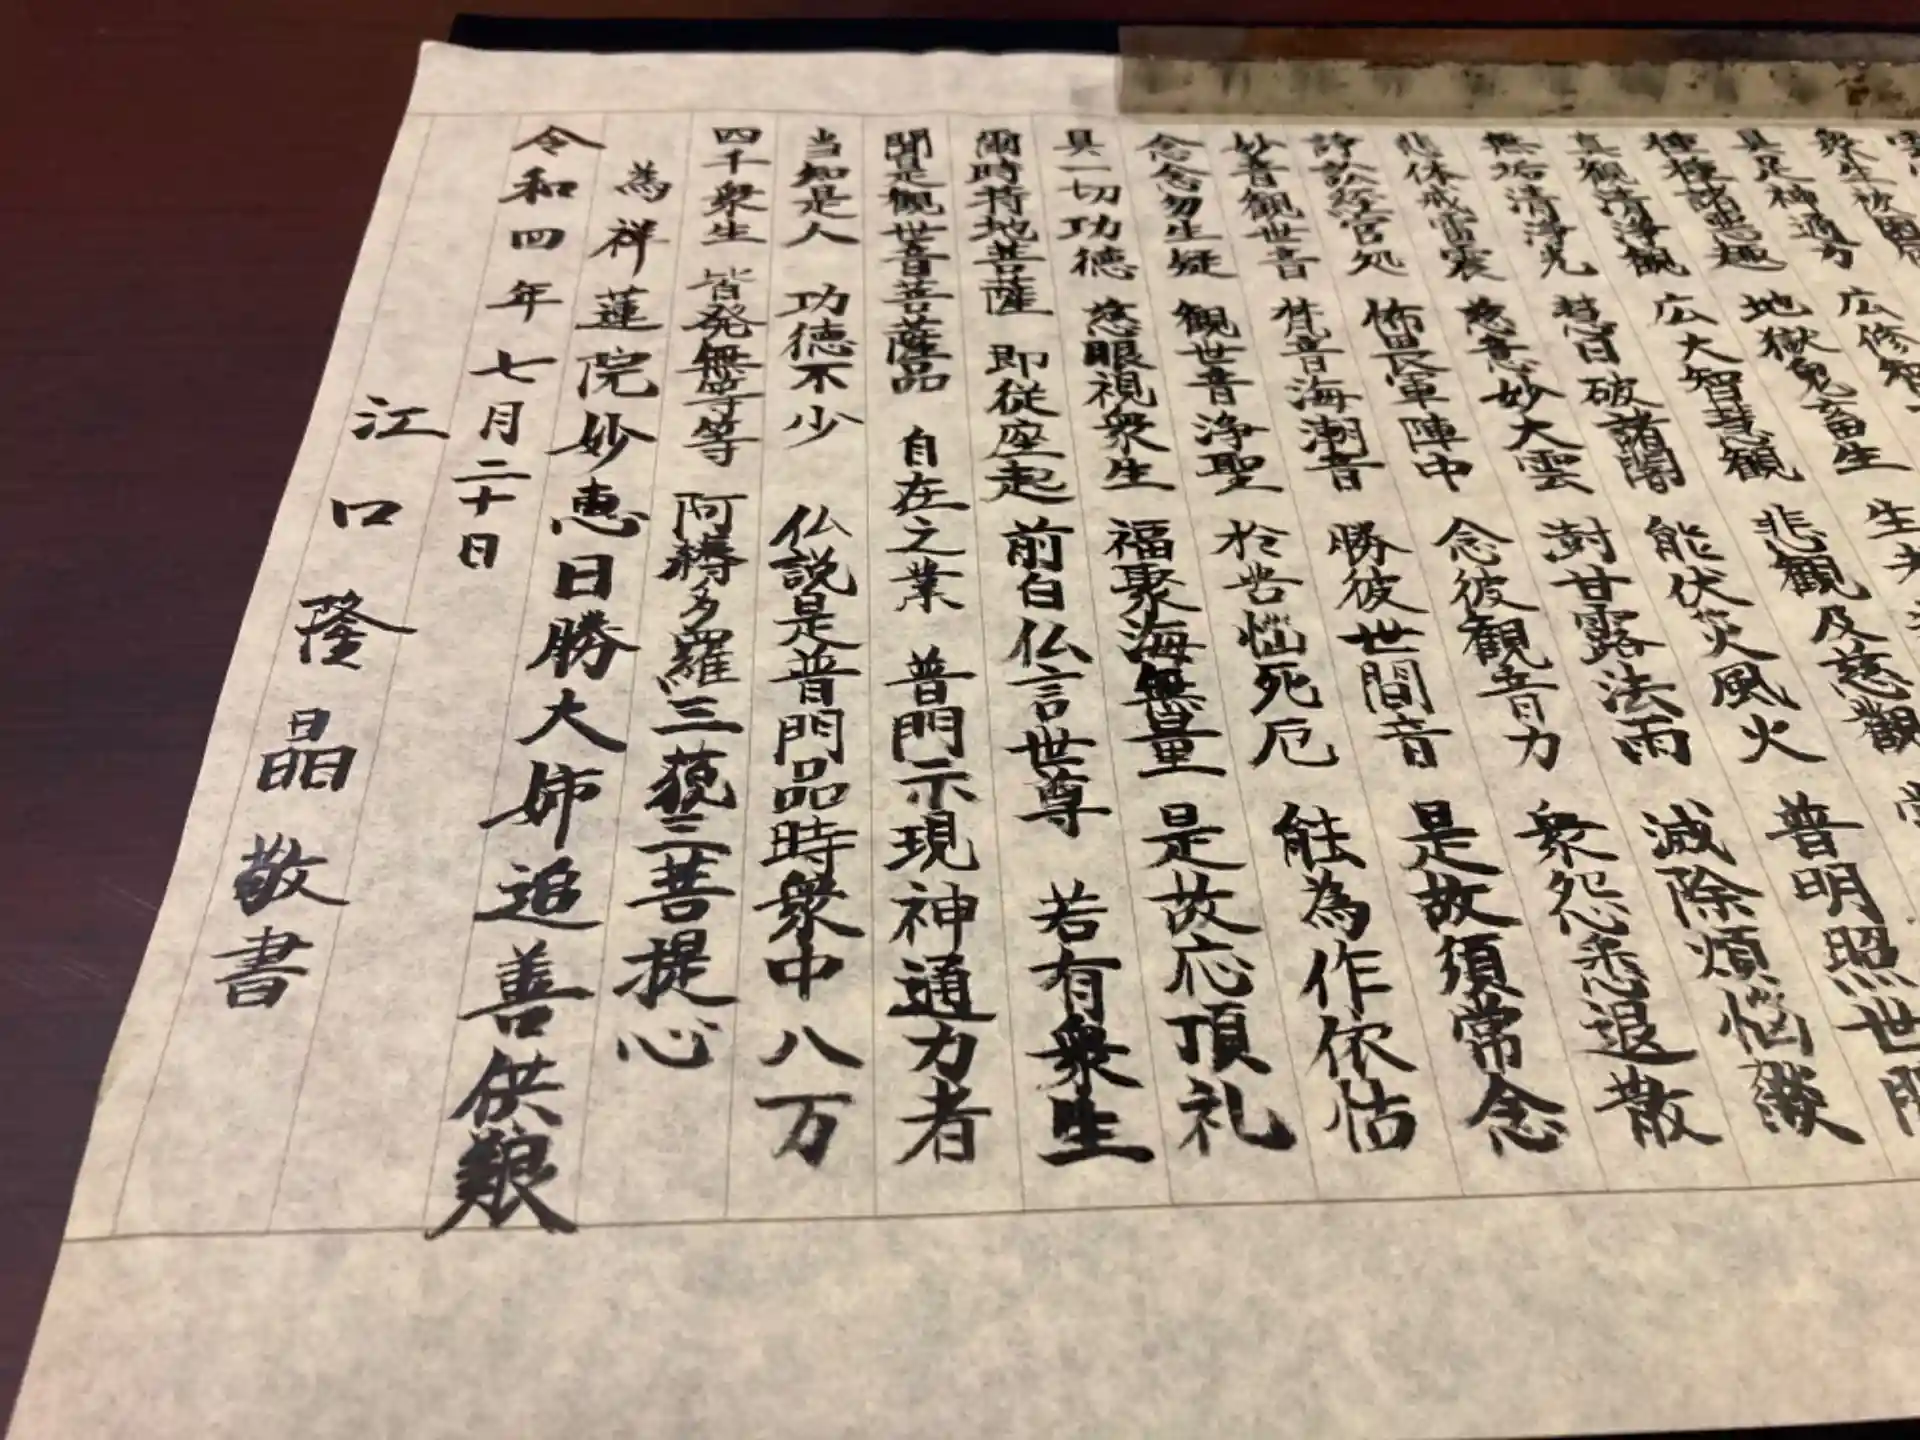 衆生被困厄
具足神通力 広修智
種種諸悪趣 地獄鬼畜生 生老
真観清浄観 広大智慧観 悲観及慈観 常
無垢清浄光 慧日破諸闇 能伏災風火 普明照世間
悲体戒雷震 慈意妙大雲 澍甘露法雨 滅除煩悩焰
諍訟経官処 怖畏軍陣中 念彼観音力 衆怨悉退散
妙音観世音 梵音海潮音 勝彼世間音 是故須常念
念念勿生疑 観世音浄聖 於苦悩死厄 能為作依怙
具一切功徳 慈眼視衆生 福聚海無量 是故応頂礼
爾時持地菩薩 即従座起 前白仏言世尊 若有衆生
聞是観世音菩薩品 自在之業 普門示現神通力者
当知是人 功徳不少 仏説是普門品時衆中八万
四千衆生 皆発無等等 阿耨多羅三藐三菩提心
為祥蓮院妙恵日勝大姉追善供
令和四年七月二十日
江口隆晶敬書